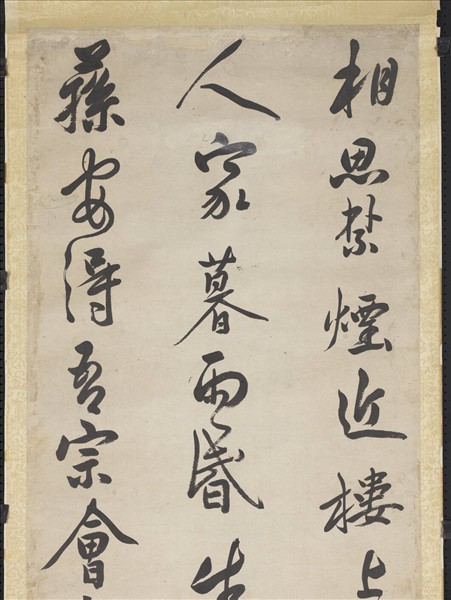 相思禁煙近樓上
人家暮雨昏
蓀安得吾宗會